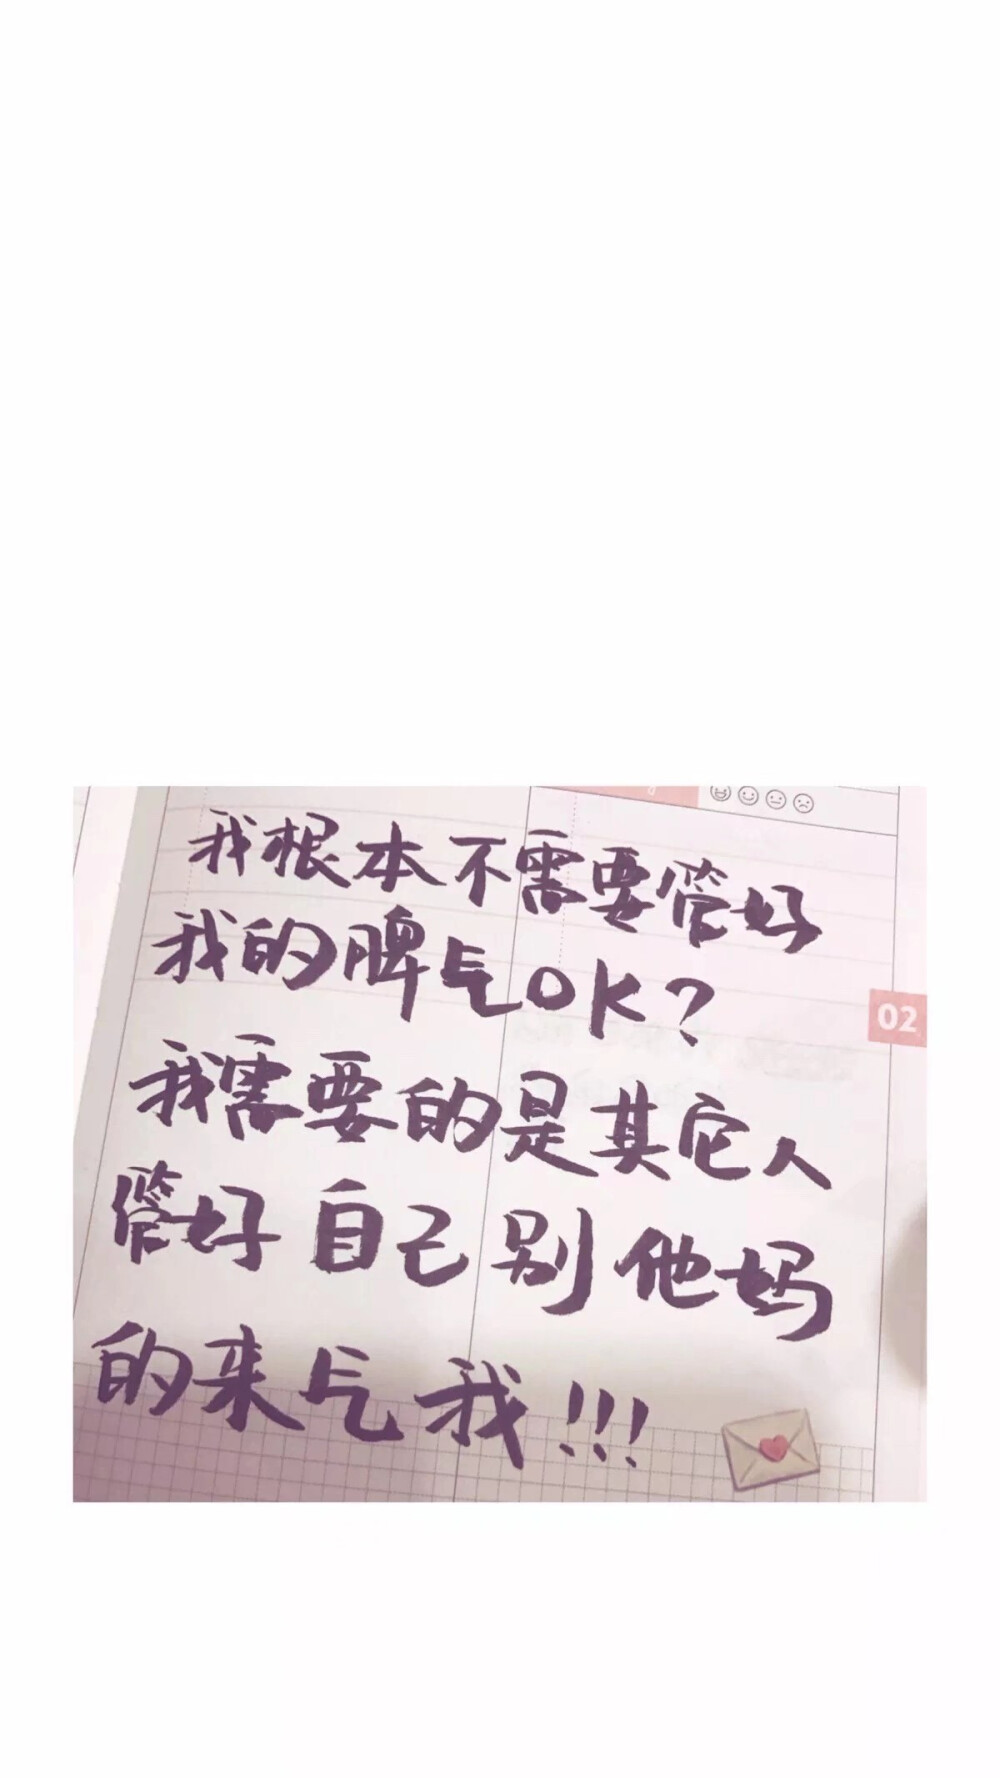 我根本不需要管好
我的脾气OK?
02
我需要的是其它人
管好自己别他妈
的来气我!!!